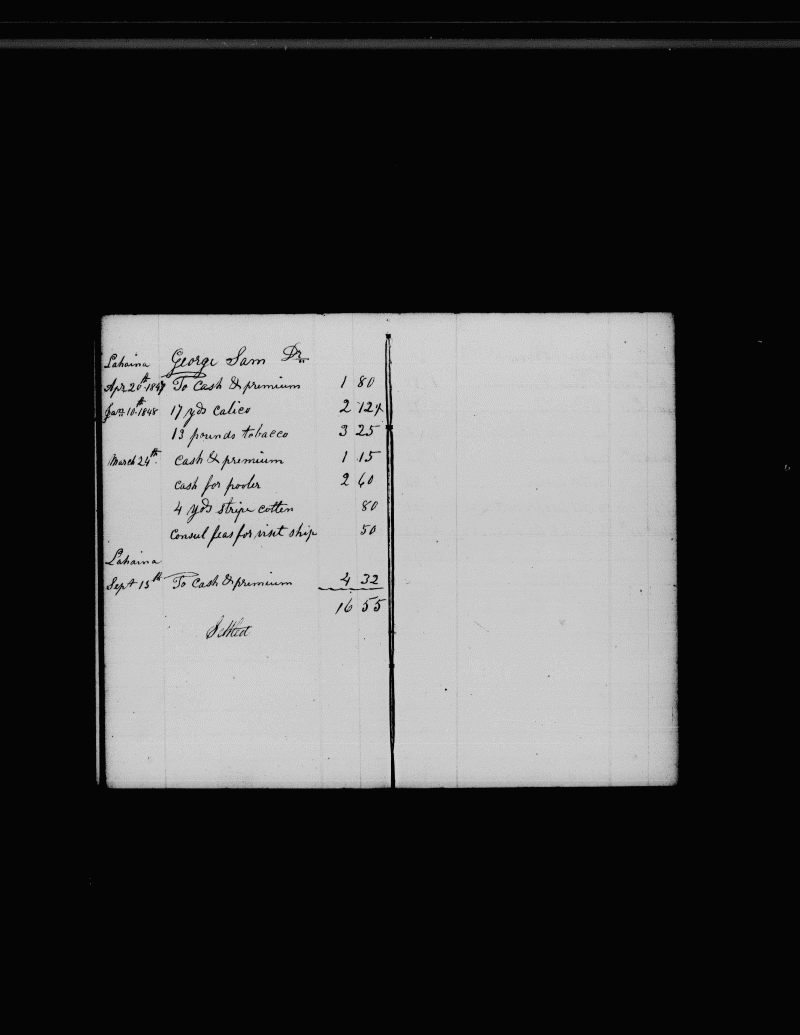 Lahaina George Sam Dr
Apr 20th 1847 To Cash & premium 1 80
Jan 10th 1848 17 yds calico 2 12½
13 pounds tobacco 3 25
March 24th cash & premium 1 15
cash for pooler 2 60
4 yds stripe cotten 80
Consul feas for visit ship 50
Lahaina
Sept 15th To Cash & premium 4 32
16 55
Settled